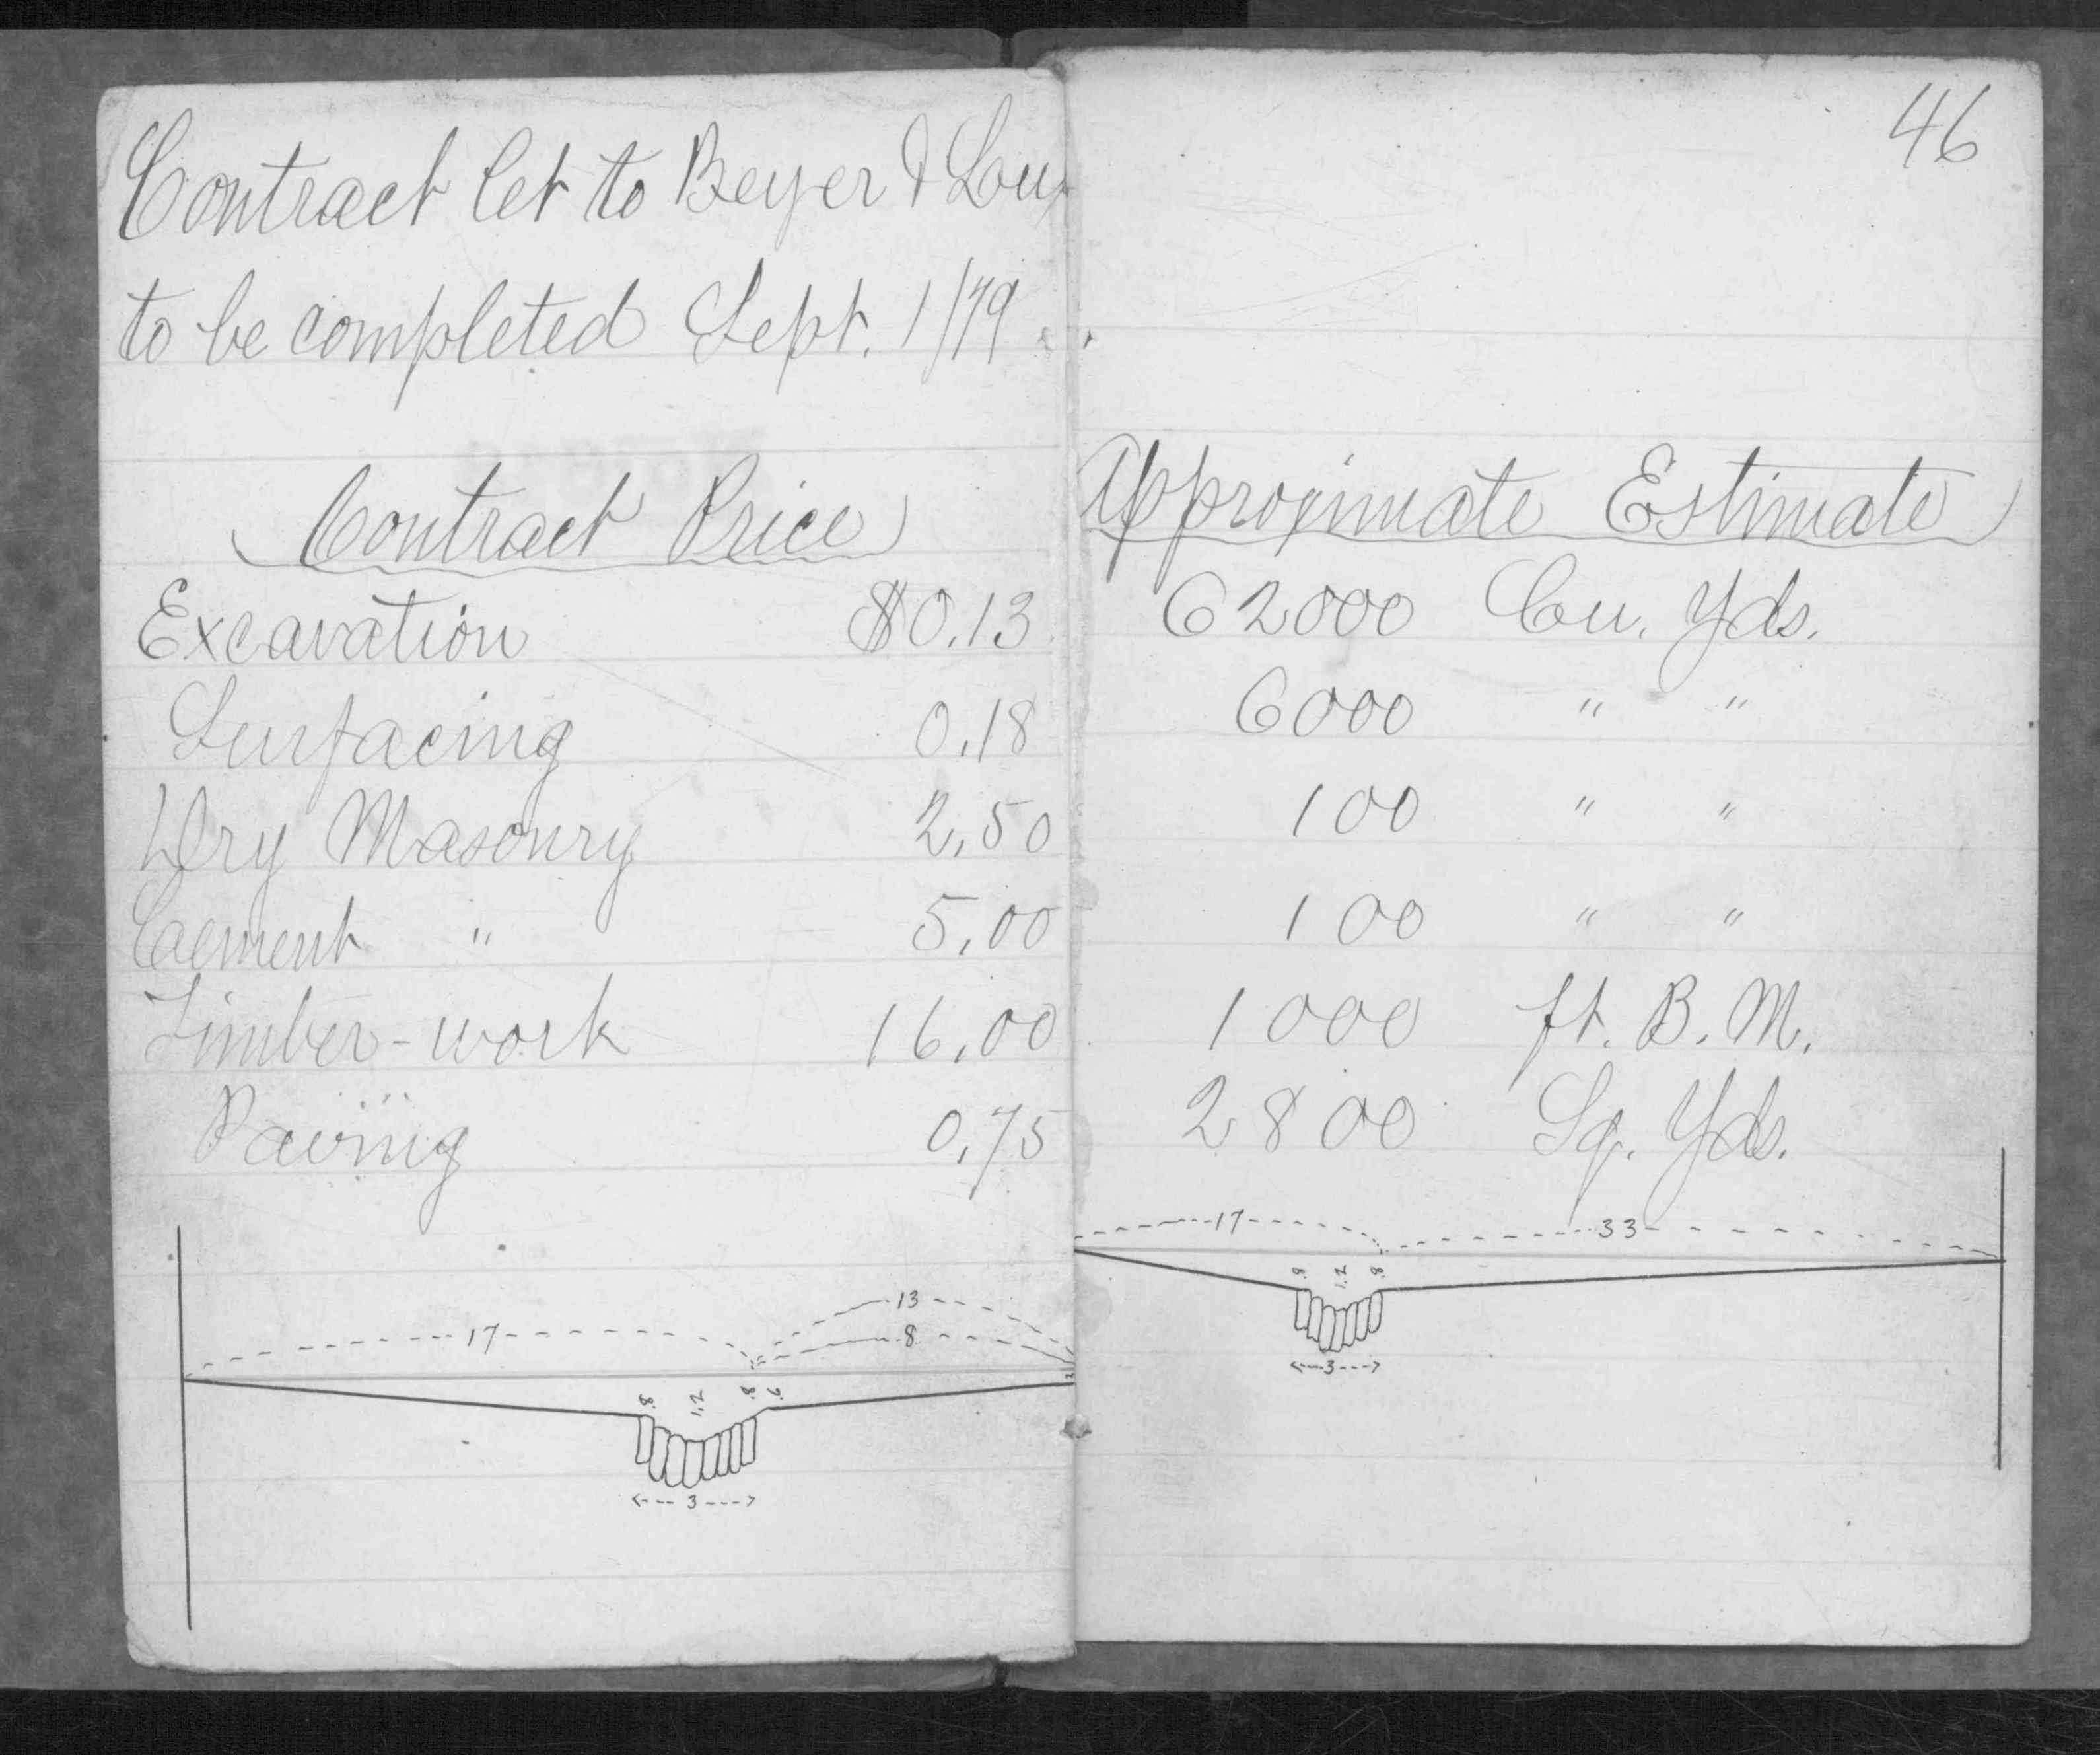 Contract let to Beyer &
to be completed Sept. 1/79
Contract Price
Excavation $0.13
Surfacing 0.18
Dry Masonry 2.50
Cement " 5.00
Timber-work 16.00
Paving 0.75
13
17 8
.8 1.2 .8
3
46
Approximate Estimate
62000 Cu. Yds.
6000 " "
100 " "
100 " "
1000 ft. B. M.
2800 Sq. Yds.
17 33
.8 1.2 .8
3